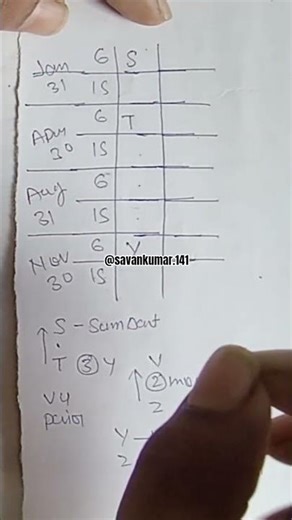 Jan 6 S
31 15
Apr 6 T
30 15
Aug 6
31 15
Nov 6 V
30 15
@savankumar.141
↑ S -
T ③ Y
V
↑ ② mo
2
Vy
Y
2